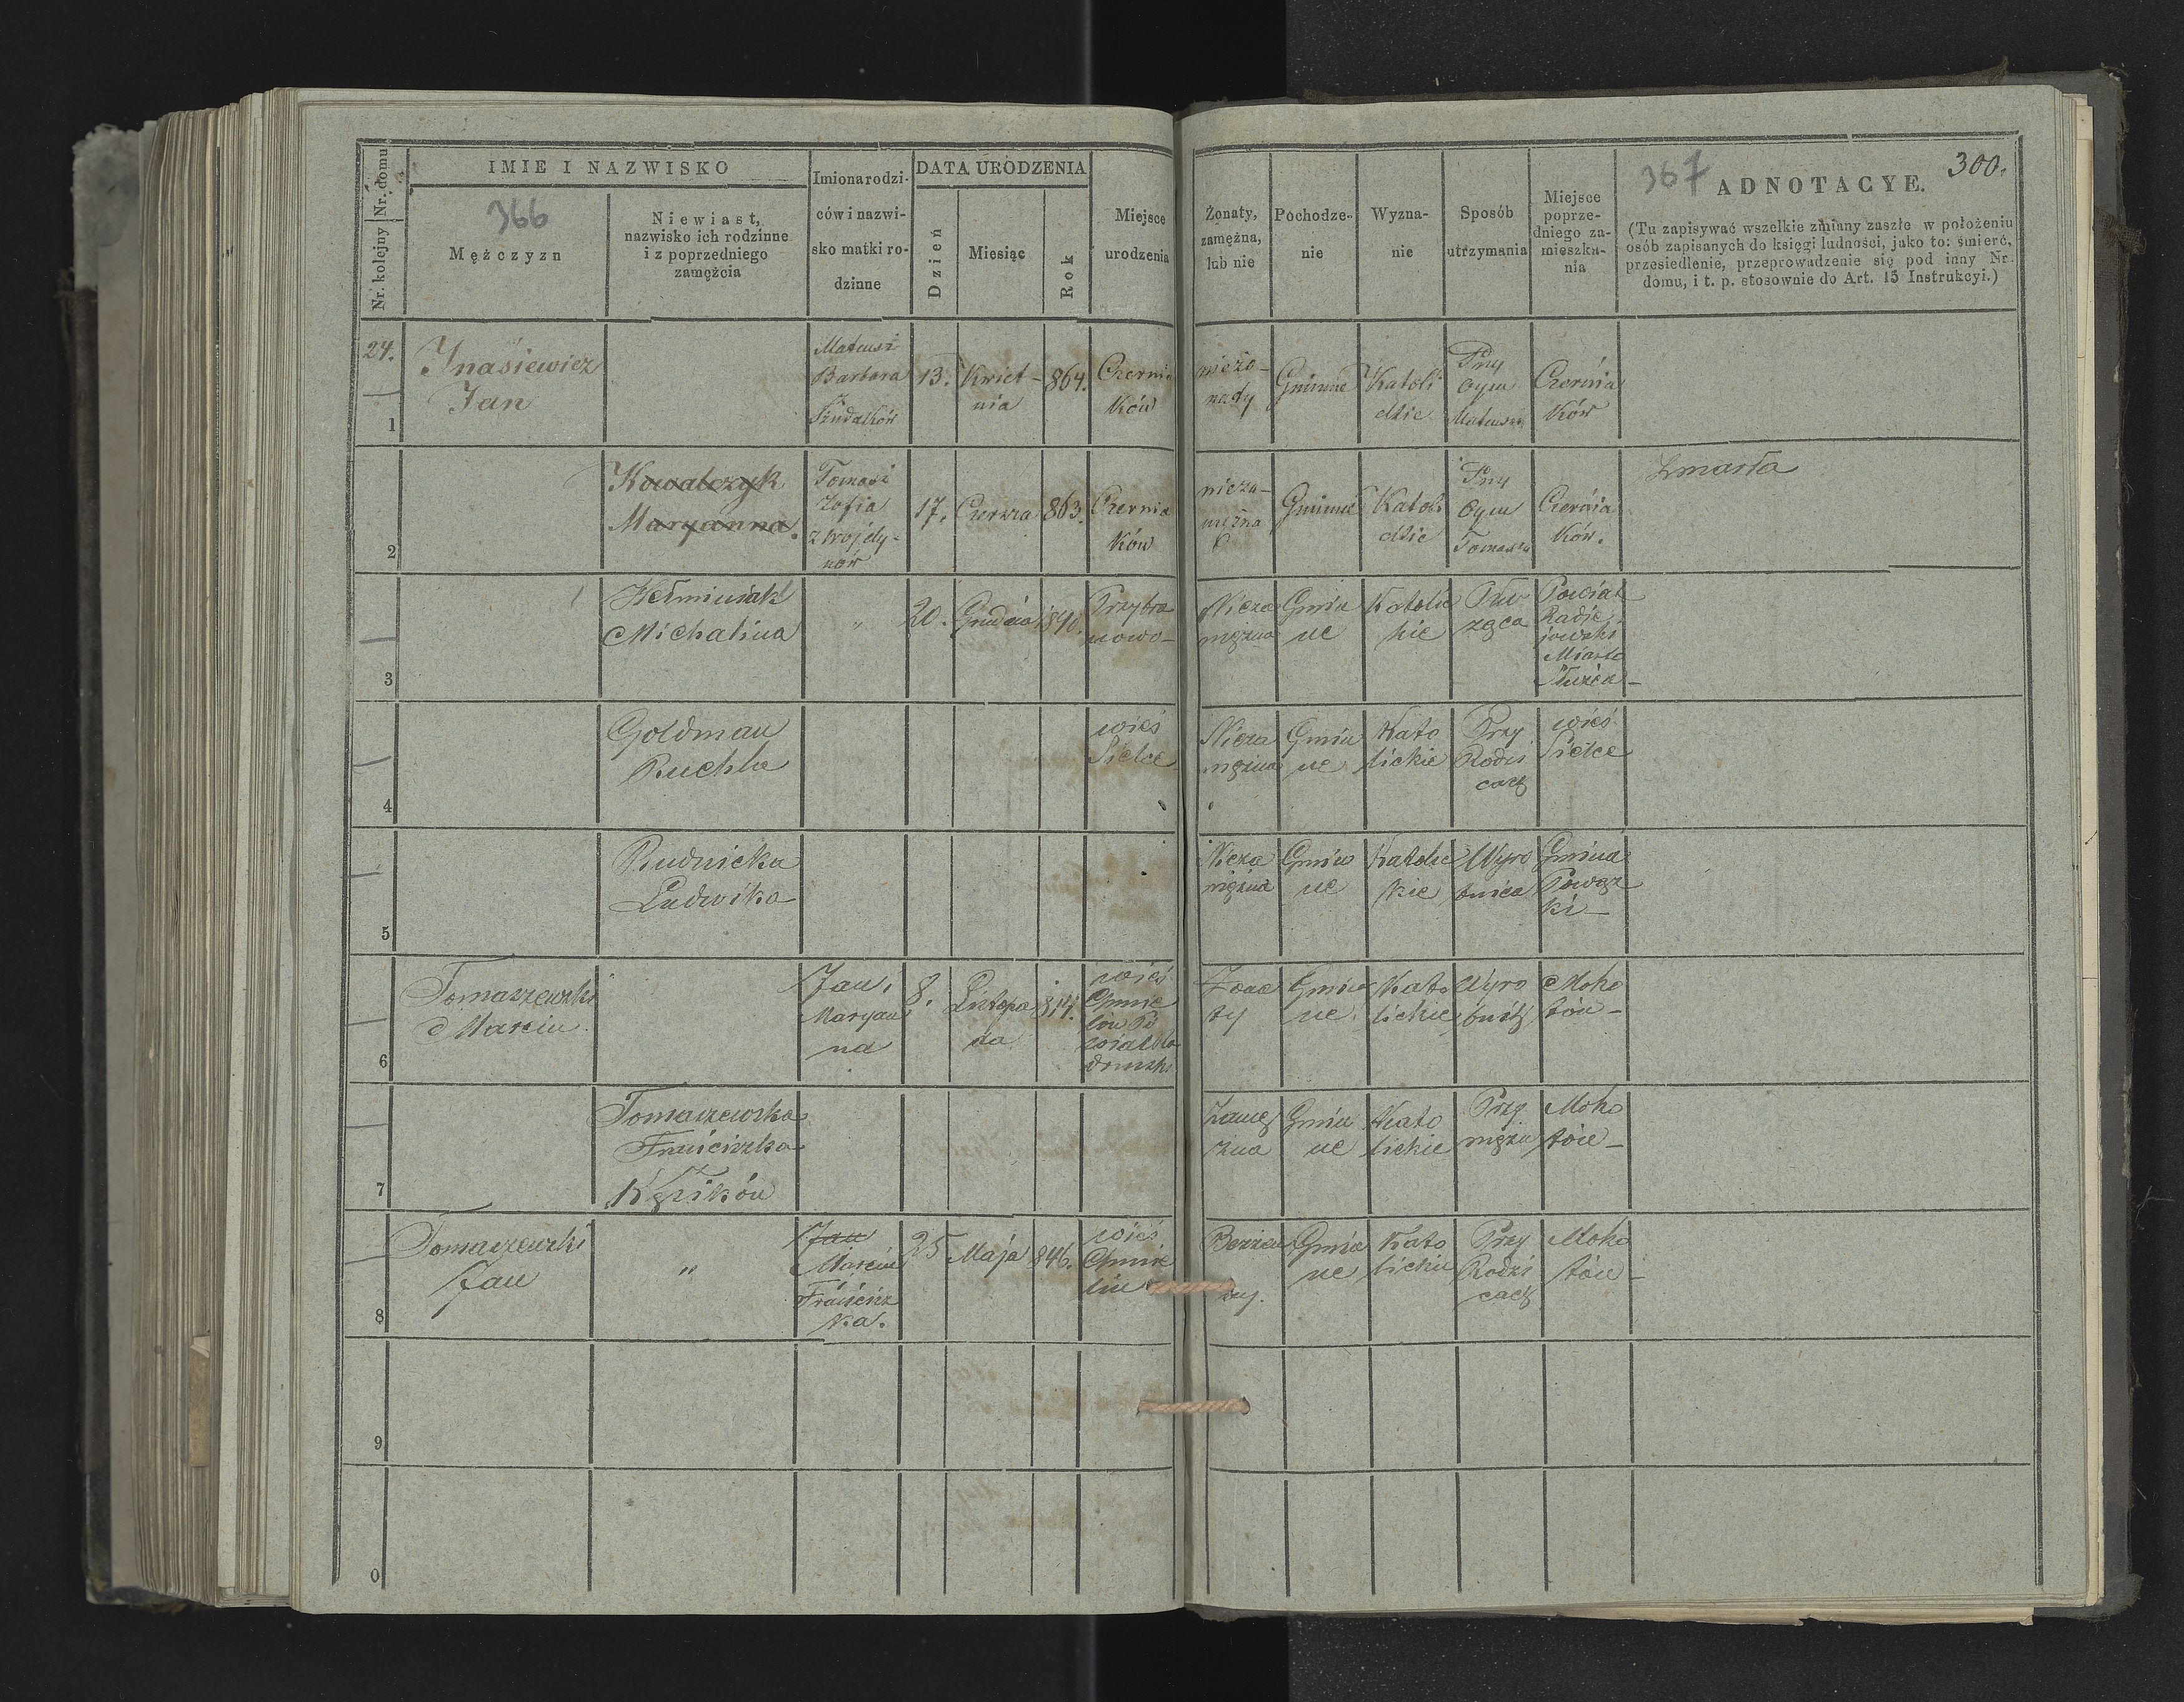 Nr. domu
Nr. kolejny
IMIE I NAZWISKO
366
Mężczyzn
Niewiast,
nazwisko ich rodzinne
i z poprzedniego
zamężcia
Imiona rodzi-
ców i nazwi-
sko matki ro-
dzinne
DATA URODZENIA
Dzień
Miesiąc
Rok
Miejsce
urodzenia
Żonaty,
zamężna,
lub nie
Pochodze-
nie
Wyzna-
nie
Sposób
utrzymania
Miejsce
poprze-
dniego za-
mieszka-
nia
367
300.
ADNOTACYE.
(Tu zapisywać wszelkie zmiany zaszłe w położeniu
osób zapisanych do księgi ludności, jako to: śmierć,
przesiedlenie, przeprowadzenie się pod inny Nr.
domu, i t. p. stosownie do Art. 15 Instrukcyi.)
24.
1
Inasiewicz
Jan
Mateusz
Barbara
z
13.
Kwiet-
nia
864.
Czernia
ków
nieżo-
naty
Gminne
Katoli
ckie
Przy
Oycu
Mateuszu
Czernia
ków
2
Kowalczyk
Maryanna.
Tomasz
Zofia
17.
Czerwca
863.
Czernia
ków
nieza-
mężna
Gminne
Katoli
ckie
Przy
Oycu
Tomaszu
Czernia
ków.
Zmarła
3
Michalina
"
20.
Grudnia
Przybra
nowo-
Nieza
mężna
Gmin
ne
Katolic
kie
Słu
żąca
Powiat
Radzie
jowski
Miasto
4
Goldman
Ruchla
wieś
Sielce
Nieza
mężna
Gmin
ne
Kato
lickie
Przy
Rodzi
cach
wieś
Sielce
5
Rudnicka
Ludwika
Nieza
mężna
Gmin
ne
Katolic
kie
Wyro
bnica
Gmina
Powąz
ki-
6
Tomaszewski
Marcin
Jan,
Maryan
na
8.
Listopa
da
814.
wieś
Chmie
lin Po
wiat
Żona
ty
Gmin
ne
Kato
lickie
Wyro
bnik
Moko
tów-
7
Tomaszewska
Franciszka
Zamę
żna
Gmin
ne
Kato
lickie
Przy
mężu
Moko
tów-
8
Tomaszewski
Jan
"
Jan
Marcin
Francisz
ka.
25
Maja
846.
wieś
Chmie
lin
Bezżen
ny.
Gmin
ne
Kato
lickie
Przy
Rodzi
cach
Moko
tów-
9
0